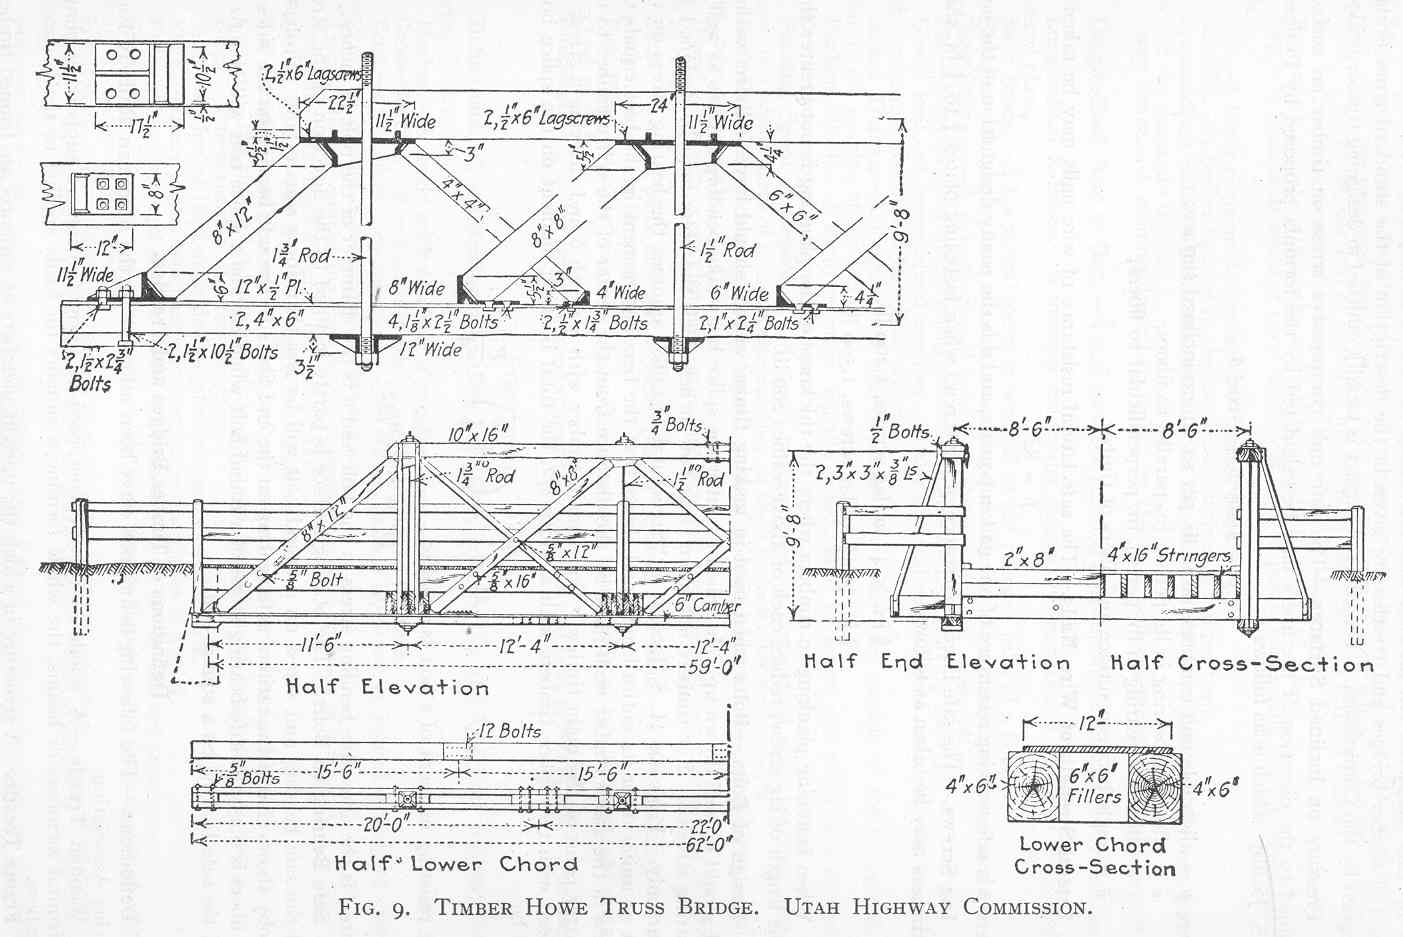 11½"
10½"
½"
17½"
8"
12"
2,½"x6" Lagscrews
22½"
11½" Wide
5½"
1½"
3"
8"x12"
4"x4"
1¾" Rod
2,½"x6" Lagscrews
24"
11½" Wide
5½"
4¼"
8"x8"
6"x6"
1½" Rod
9'-8"
11½" Wide
6"
12"x½" Pl.
2,4"x6"
8" Wide
5½"
3"
4" Wide
6" Wide
4¼"
4,1⅛"x2½" Bolts
2,½"x1¾" Bolts
2,1"x2¼" Bolts
2,1½"x2¾"
Bolts
2,1½"x10½" Bolts
3½"
12" Wide
10"x16"
¾" Bolts
1¾" Rod
8"x8"
1½" Rod
8"x12"
⅝"x12"
⅝" Bolt
⅝"x16"
6" Camber
11'-6"
12'-4"
12'-4"
59'-0"
Half Elevation
½" Bolts
8'-6"
8'-6"
2,3"x3"x⅜" Ls
9'-8"
2"x8"
4"x16" Stringers
Half End Elevation
Half Cross-Section
12 Bolts
15'-6"
15'-6"
⅝" Bolts
20'-0"
22'0"
62'-0"
Half Lower Chord
12"
4"x6"
6"x6"
Fillers
4"x6"
Lower Chord
Cross-Section
Fig. 9. Timber Howe Truss Bridge. Utah Highway Commission.